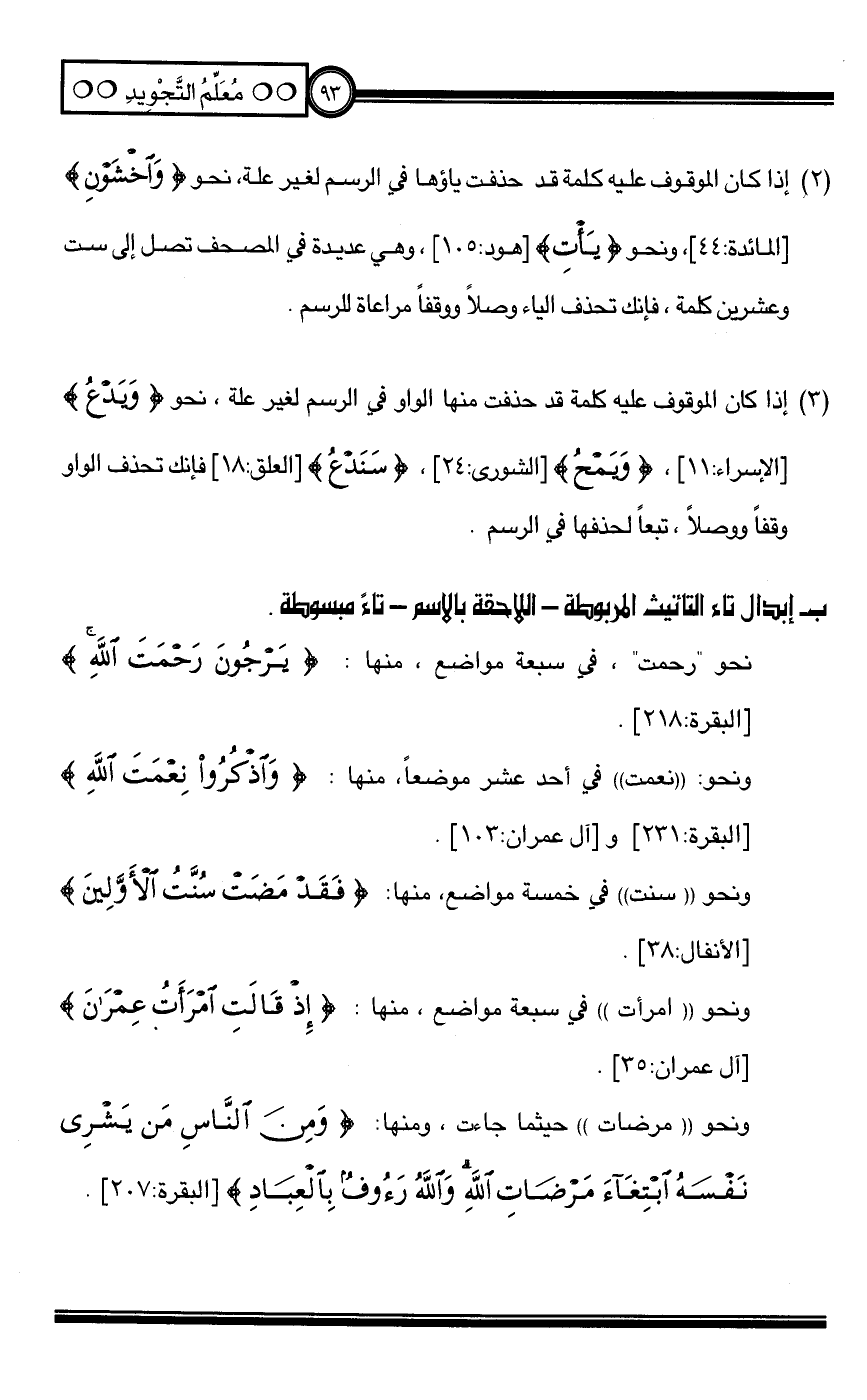 ○○ مُعَلِّمُ التَّجْوِيدِ ○○ ٩٣
(٢) إذا كان الموقوف عليه كلمة قد حذفت ياؤها في الرسم لغير علة، نحو ﴿ وَٱخْشَوْنِ ﴾
[المائدة:٤٤]، ونحو ﴿ يَأْتِ ﴾ [هود:١٠٥] ، وهي عديدة في المصحف تصل إلى ست
وعشرين كلمة ، فإنك تحذف الياء وصلاً ووقفاً مراعاة للرسم .
(٣) إذا كان الموقوف عليه كلمة قد حذفت منها الواو في الرسم لغير علة ، نحو ﴿ وَيَدْعُ ﴾
[الإسراء:١١] ، ﴿ وَيَمْحُ ﴾ [الشورى:٢٤] ، ﴿ سَنَدْعُ ﴾ [العلق:١٨] فإنك تحذف الواو
وقفاً ووصلاً ، تبعاً لحذفها في الرسم .
ب- إبدال تاء التأنيث المربوطة – اللاحقة بالاسم – تاءً مبسوطة .
نحو "رحمت" ، في سبعة مواضع ، منها : ﴿ يَرْجُونَ رَحْمَتَ ٱللَّهِ ۚ ﴾
[البقرة:٢١٨] .
ونحو: ((نعمت)) في أحد عشر موضعاً، منها : ﴿ وَٱذْكُرُوا۟ نِعْمَتَ ٱللَّهِ ﴾
[البقرة:٢٣١] و [آل عمران:١٠٣] .
ونحو (( سنت)) في خمسة مواضع، منها: ﴿ فَقَدْ مَضَتْ سُنَّتُ ٱلْأَوَّلِينَ ﴾
[الأنفال:٣٨] .
ونحو (( امرأت )) في سبعة مواضع ، منها : ﴿ إِذْ قَالَتِ ٱمْرَأَتُ عِمْرَٰنَ ﴾
[آل عمران:٣٥] .
ونحو (( مرضات )) حيثما جاءت ، ومنها: ﴿ وَمِنَ ٱلنَّاسِ مَن يَشْرِى
نَفْسَهُ ٱبْتِغَآءَ مَرْضَاتِ ٱللَّهِ ۗ وَٱللَّهُ رَءُوفٌۢ بِٱلْعِبَادِ ﴾ [البقرة:٢٠٧] .